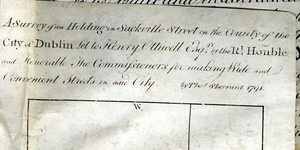 A Survey of an Holding in Sackville Street in the County of the
City of Dublin Let to Henry Ottiwell Esqr. by the Rt. Honble
and Honorable The Commissioners for making Wide and
Convenient Streets in said City. by Thos. Sherrard 1791.
W.